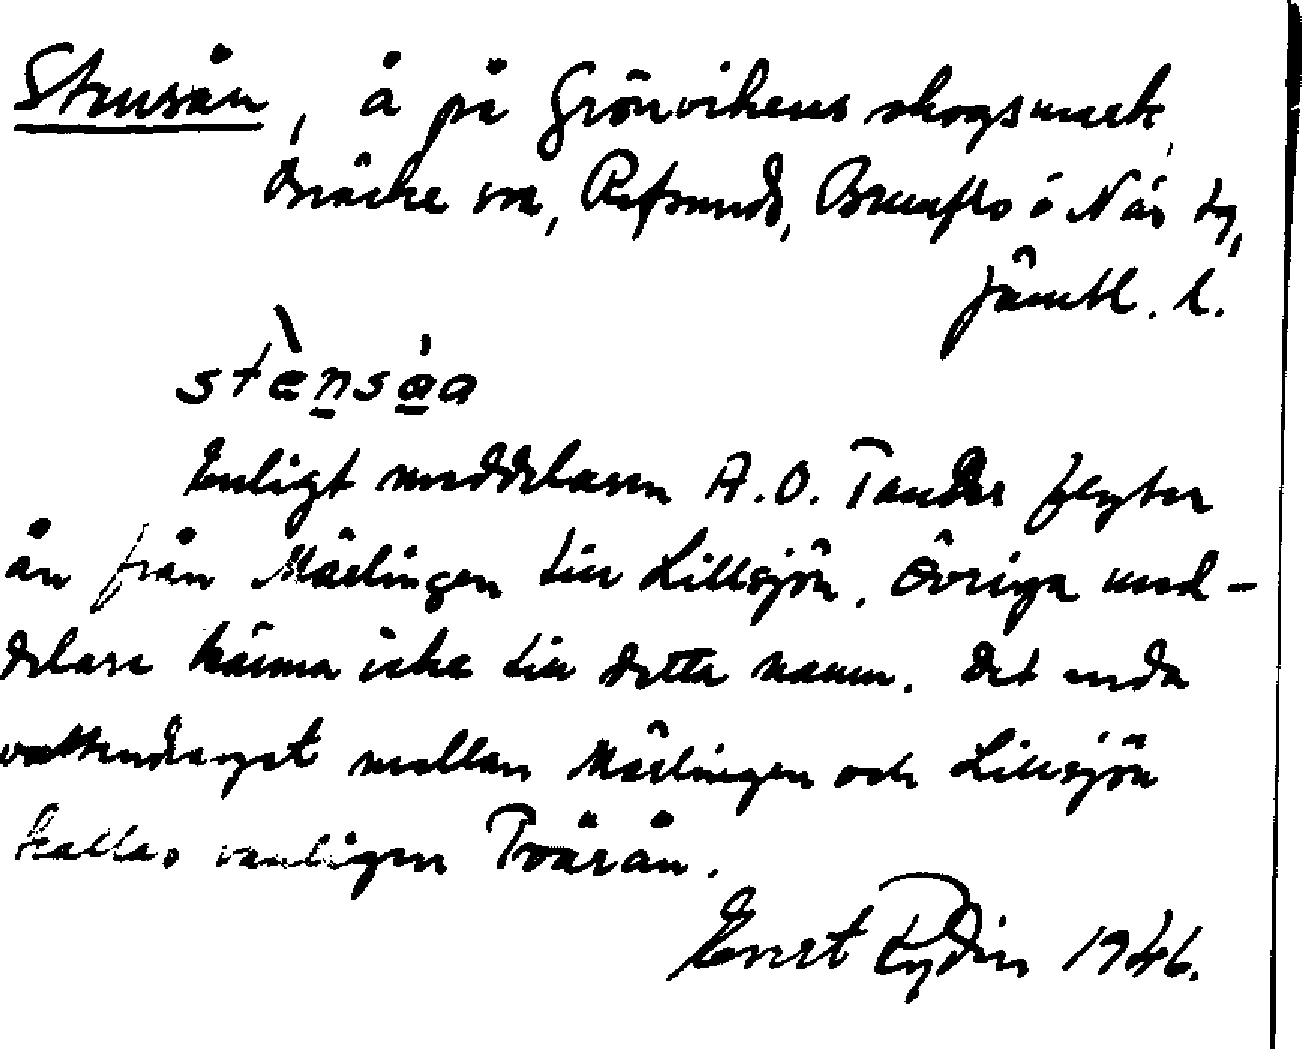 Stensån, å på Grönvikens skogsmark,
Bräcke sn, Refsunds, Brunflo o Näs tg,
Jämtl. l.
stènsåa
Enligt meddelaren A.O. Tander flyter
ån från Mäslingen till Lillsjön. Övriga med-
delare känna icke till detta namn. Det enda
vattendraget mellan Mäslingen och Lillsjön
kallas vanligen Tvärån.
Ernst Rydin 1946.